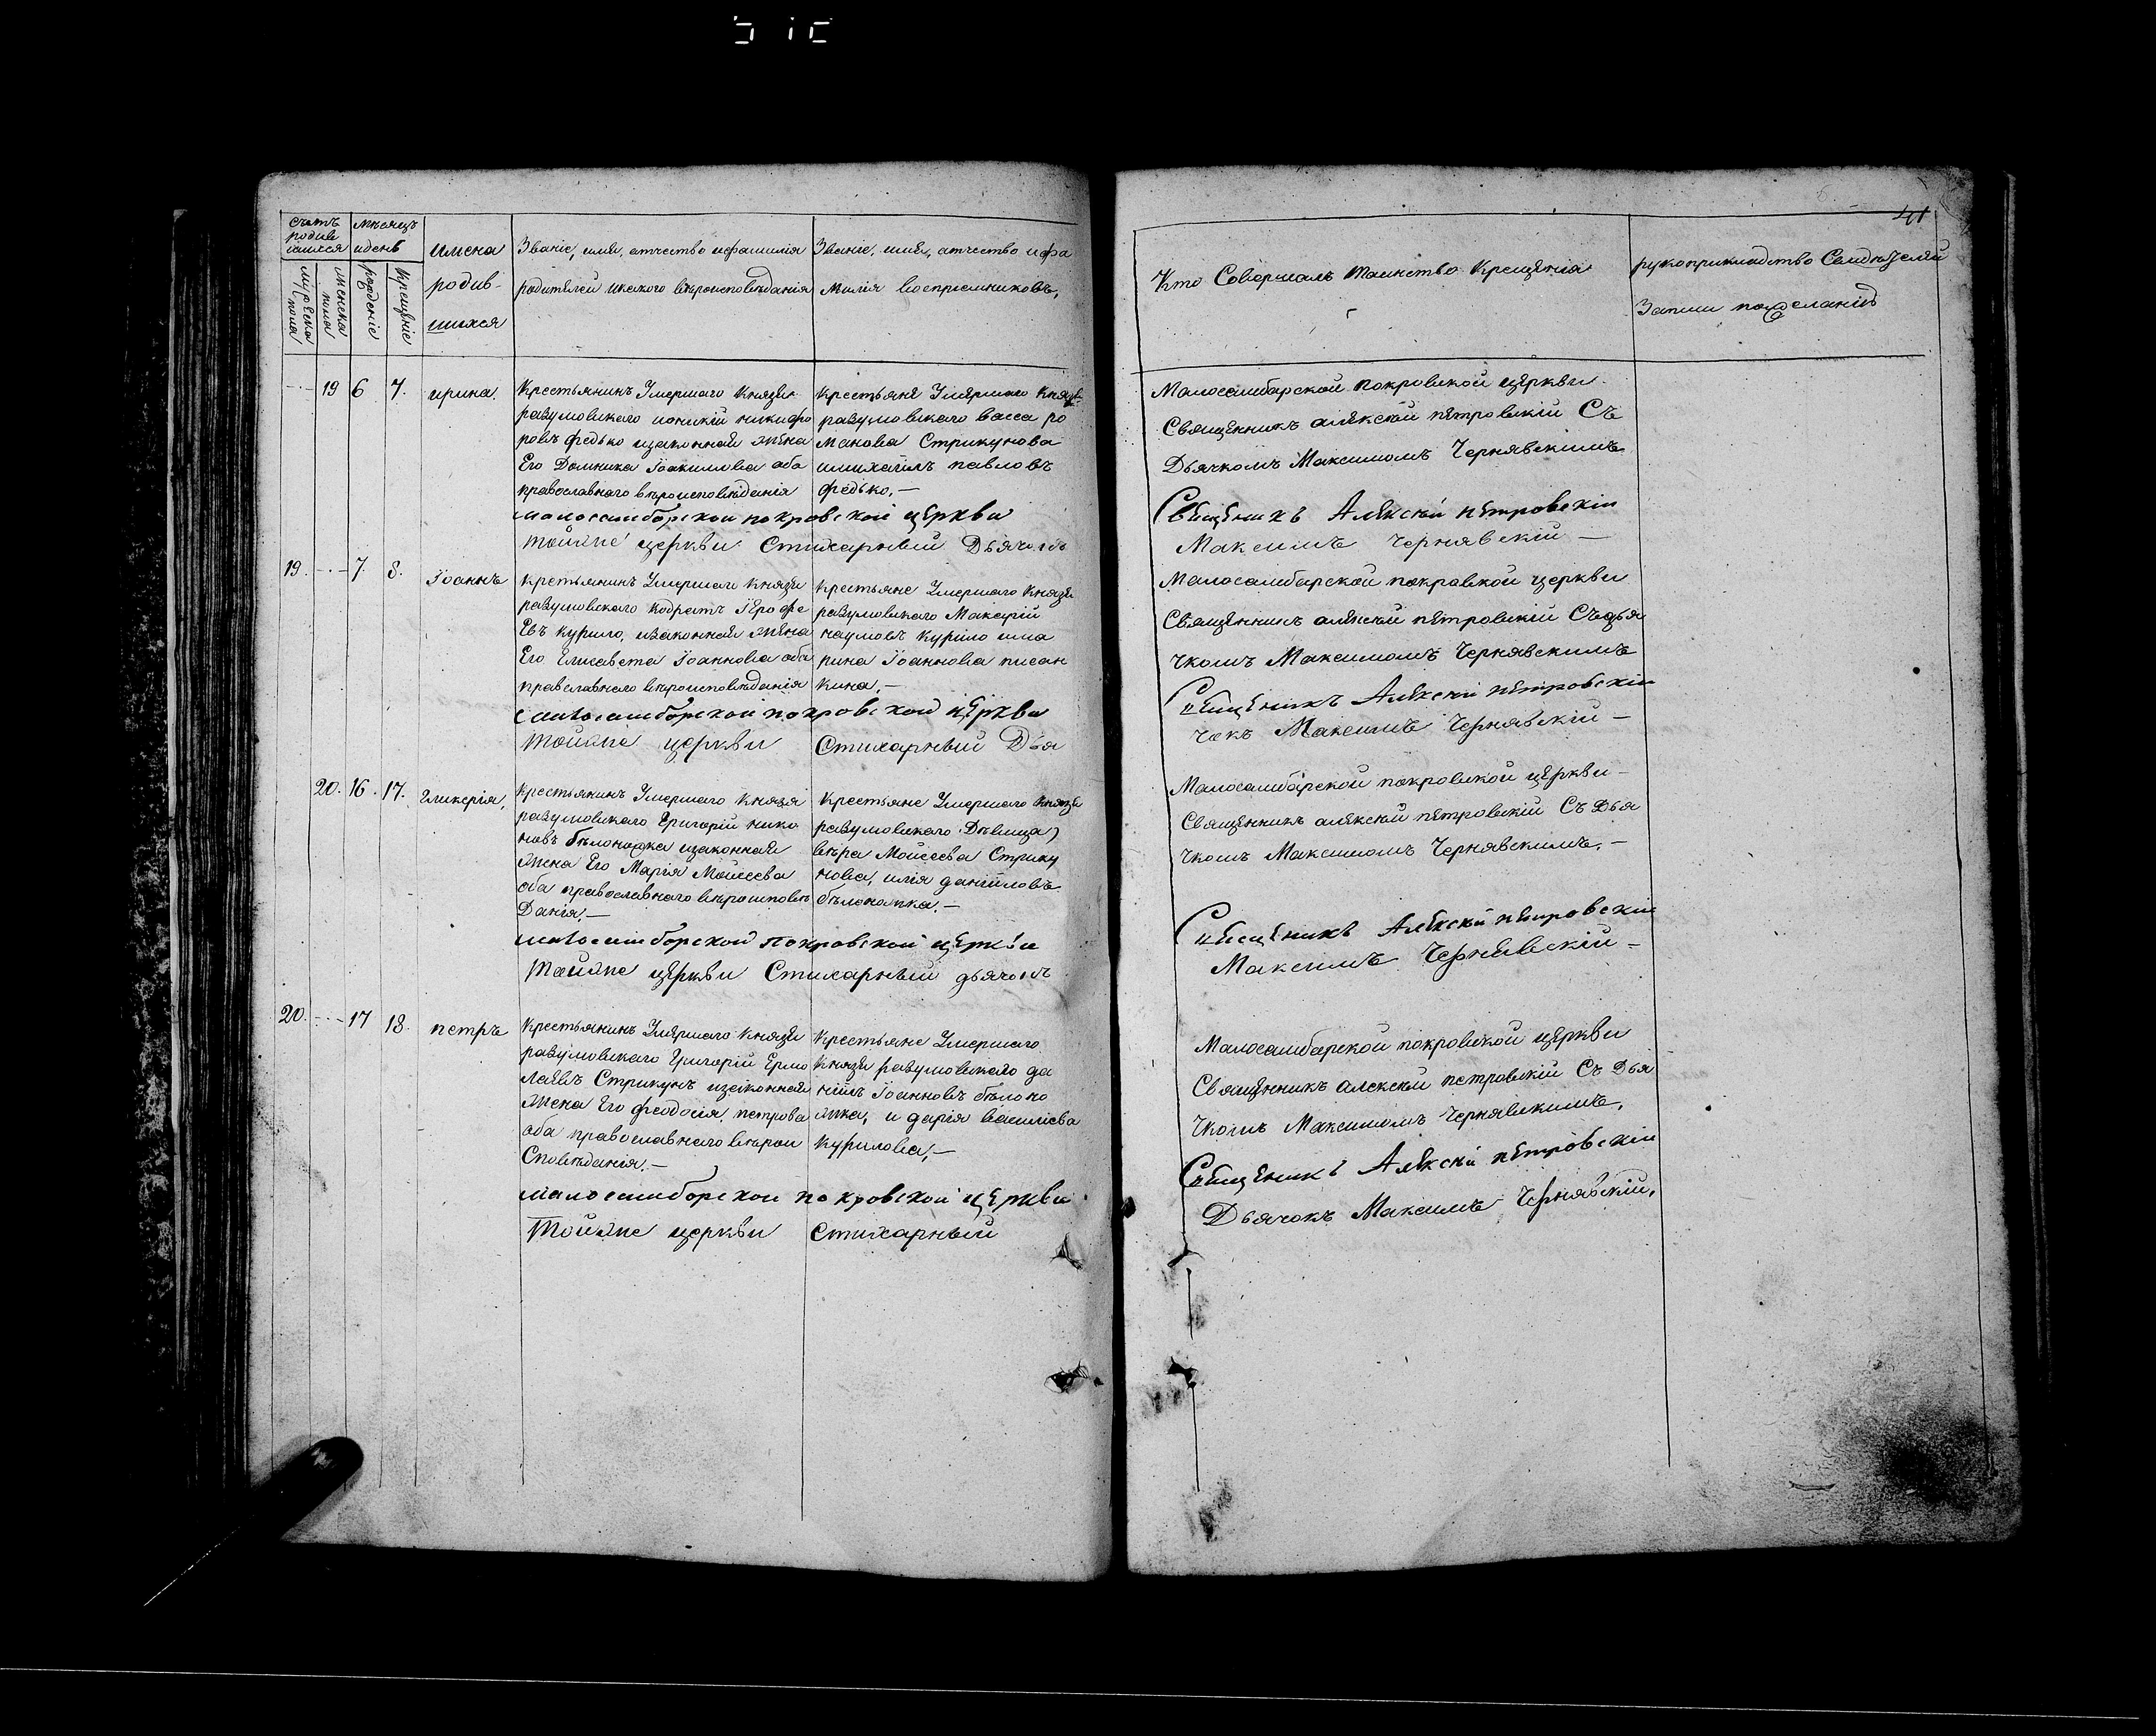 41
Счетъ родив шихся
Мѣсяцъ и день
имена родив- шихся
Званіе, имя, отчество ифамилія
родителей икакого вѣроисповѣданія
Званіе, имя, отчество ифа
милія воспрiемниковъ,
Кто Совершалъ таинство Крещенія
рукоприкладство Свидѣтелей
Записи пожеланію
мужеска пола
женска пола
рожденіе
Крещеніе
19 6 7. ирина.
Крестьянинъ Умершаго Князя
разумовскаго іоникій никифо
ровъ федько изаконная жена
Его Домника Іоакимова оба
православнаго вѣроисповѣданія
Крестьяне Умершаго Князя
разумовскаго васса ро
манова Стрикунова
имихаилъ павловъ
федько.—
Малосамборской покровской церкви
Священникъ алексѣй петровскій Съ
Дьячкомъ Максимомъ Чернявскимъ
малосамборской покровской церкви
Священикъ Алексѣй петровскій
тойже церкви Стихарный Дьячокъ
Максимъ Чернявскій —
19. 7. 8. Іоаннъ
Крестьянинъ Умершаго Князя
разумовскаго Кодратъ Іерофе
Евъ курило, изаконная жена
Его Елисавета Іоаннова оба
православнаго вѣроисповѣданія
Крестьяне Умершаго Князя
разумовскаго
наумовъ Курило има
рина Іоаннова писан
кина.—
Малосамборской покровской церкви
Священникъ алексѣй петровскій Съдья
чкомъ Максимомъ Чернявскимъ
малосамборской покровской церкви
Священикъ Алексѣй петровскій
тойже церкви Стихарный Дья
чекъ Максимъ Чернявскій —
20. 16. 17. Гликерія,
Крестьянинъ Умершаго Князя
разумовскаго Григорій нико
новъ бѣлоножка изаконная
жена Его Марія Моисеева
оба православнаго вѣроисповѣ
Данія.—
Крестьяне Умершаго Князя
разумовскаго Дѣвица
вѣра Моисеева Стрику
нова, илія даніиловъ
бѣлоножка.—
Малосамборской покровской церкви —
Священникъ алексѣй петровскій Съ Дья
чкомъ Максимомъ Чернявскимъ.—
малосамборской покровской церкви
Священикъ Алексѣй петровскій
тойже церкви Стихарный дьячокъ
Максимъ Чернявскій —
20. 17 18. петръ
Крестьянинъ Умершаго Князя
разумовскаго Григорій Ермо
лаевъ Стрикунъ изаконная
жена Его феодосія петрова
оба православнаго вѣрои
Сповѣданія.—
Крестьяне Умершаго
Князя разумовскаго да
ніилъ Іоанновъ бѣлоно
жка, и дарія василіева
Курилова,—
Малосамборской покровской церкви
Священникъ алексѣй петровскій Съ Дья
чкомъ Максимомъ Чернявскимъ,
малосамборской покровской церкви
Священикъ Алексѣй петровскій
тойже церкви Стихарный
Дьячокъ Максимъ Чернявскій,